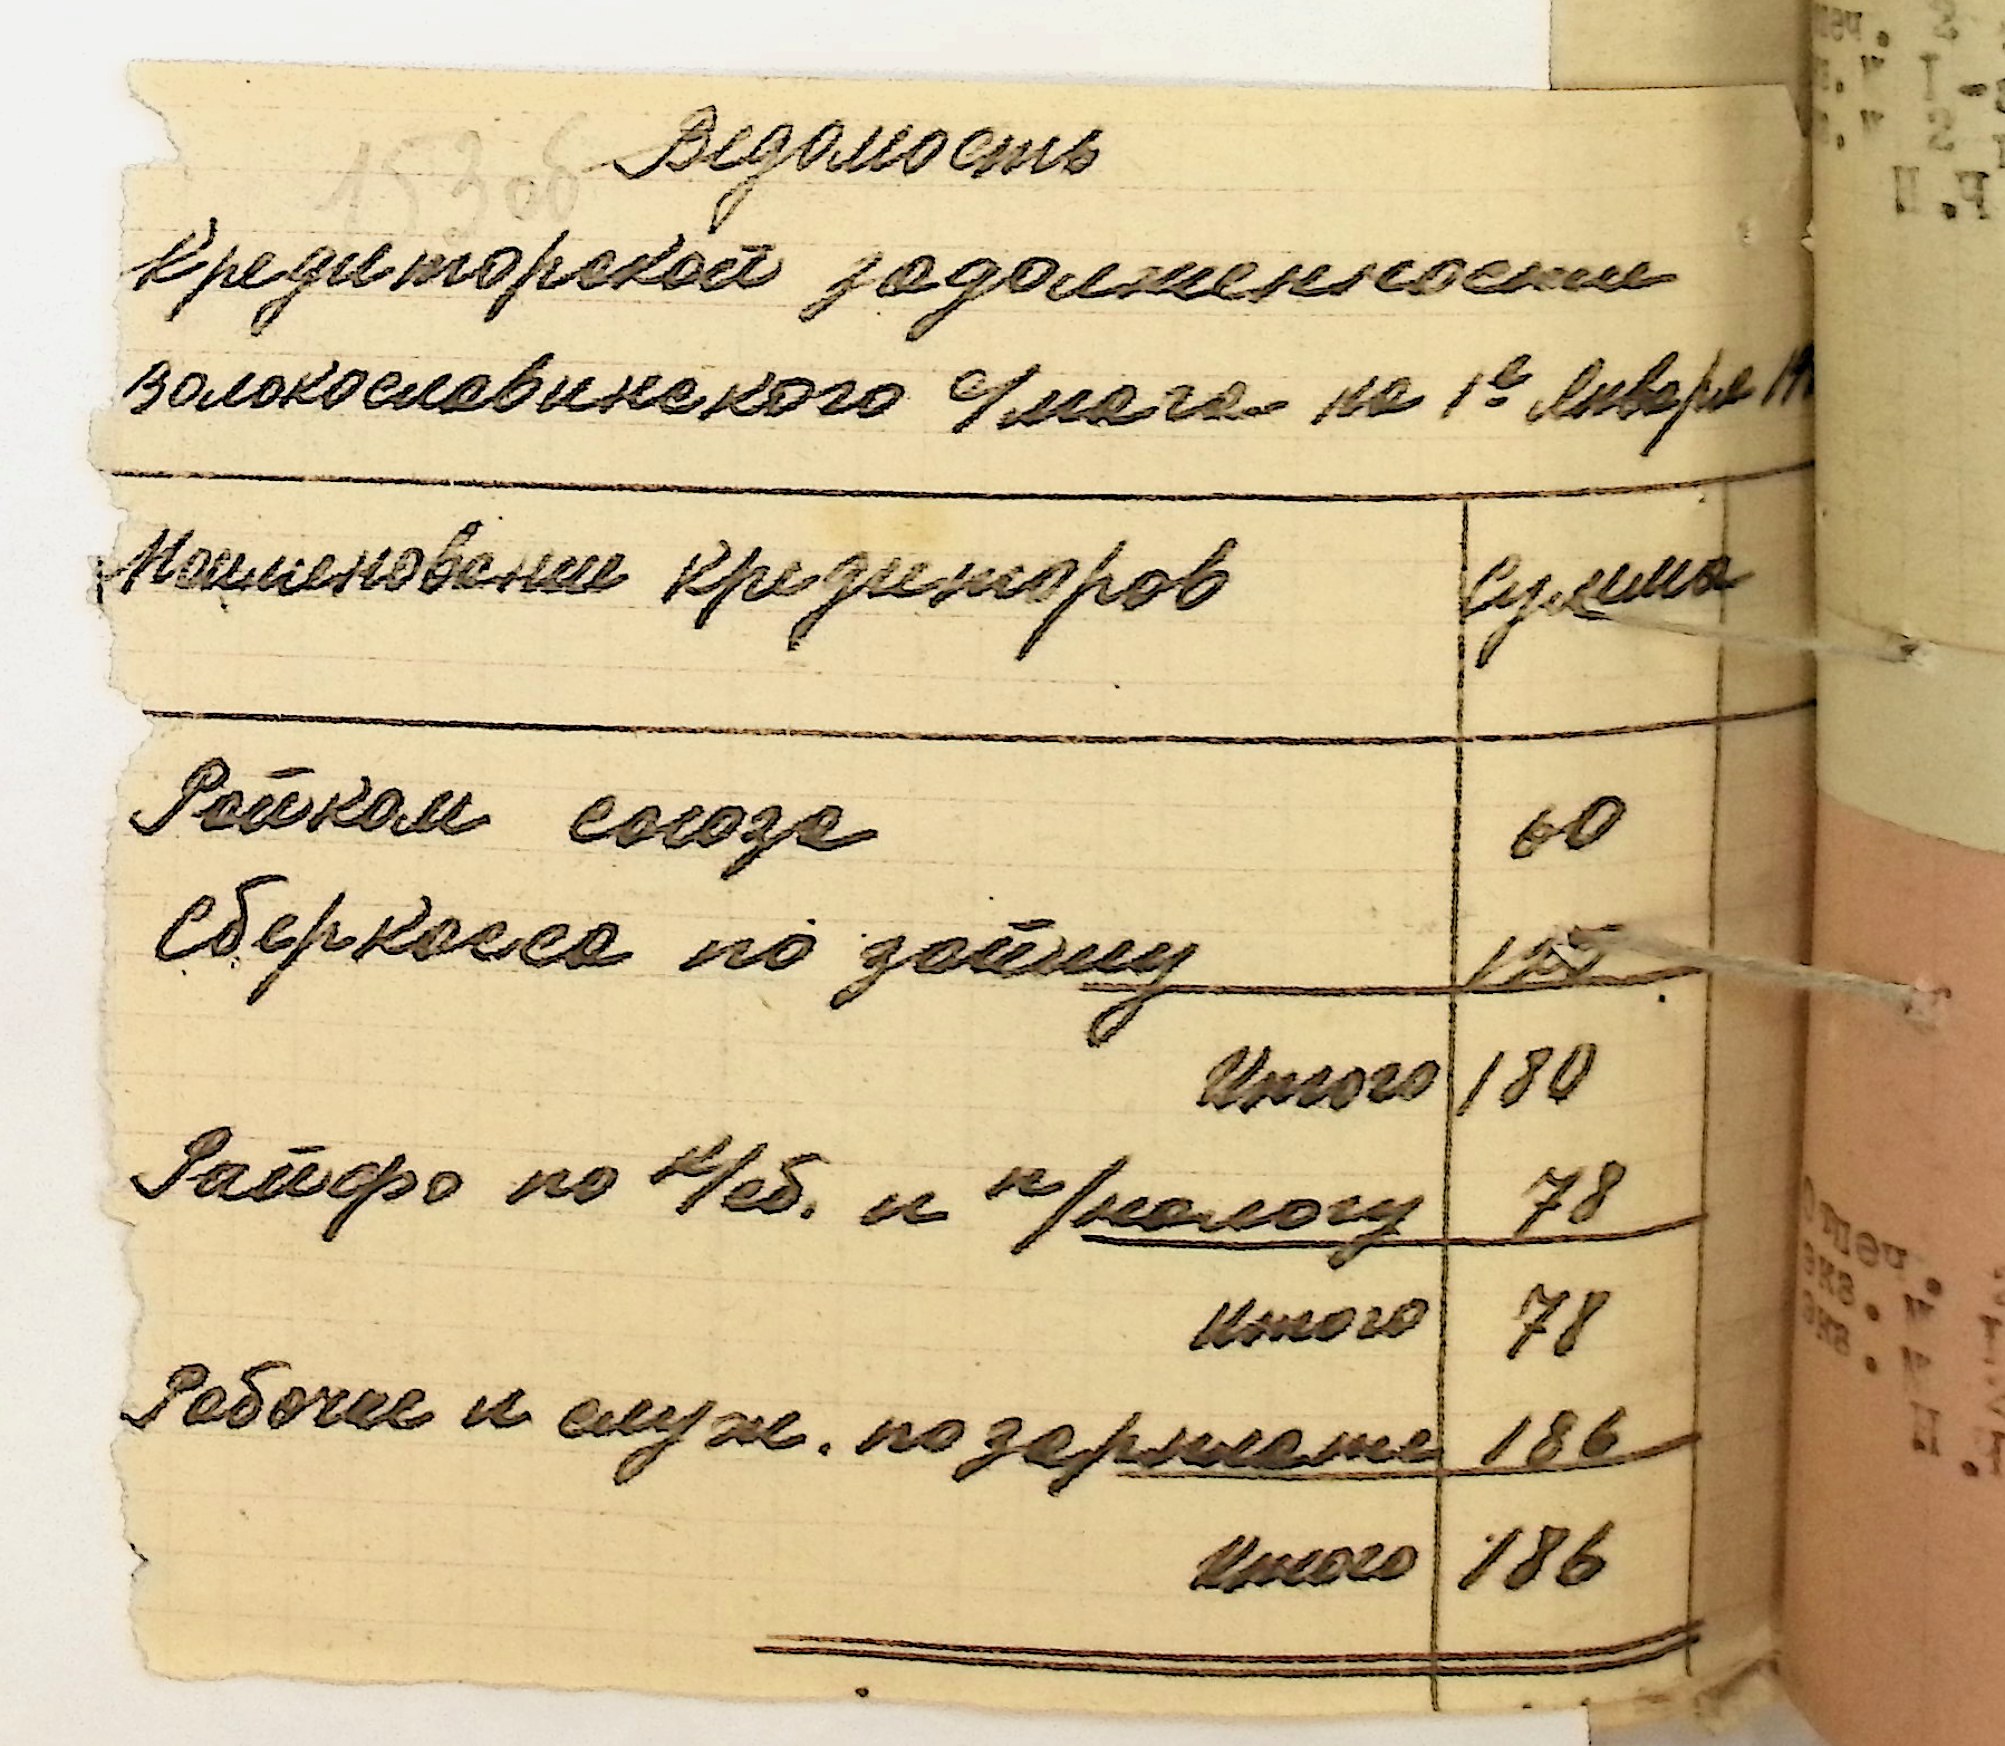 153об
Ведомость
Кредиторской задолженности
Волокославинского с/мага на 1е Января
Наименование Кредиторов Сумма
Райком союза 60
Сберкасса по займу
Итого 180
Райфо по к/сб. и п/налогу 78
Итого 78
Рабочие и служ. по зарплате 186
Итого 186